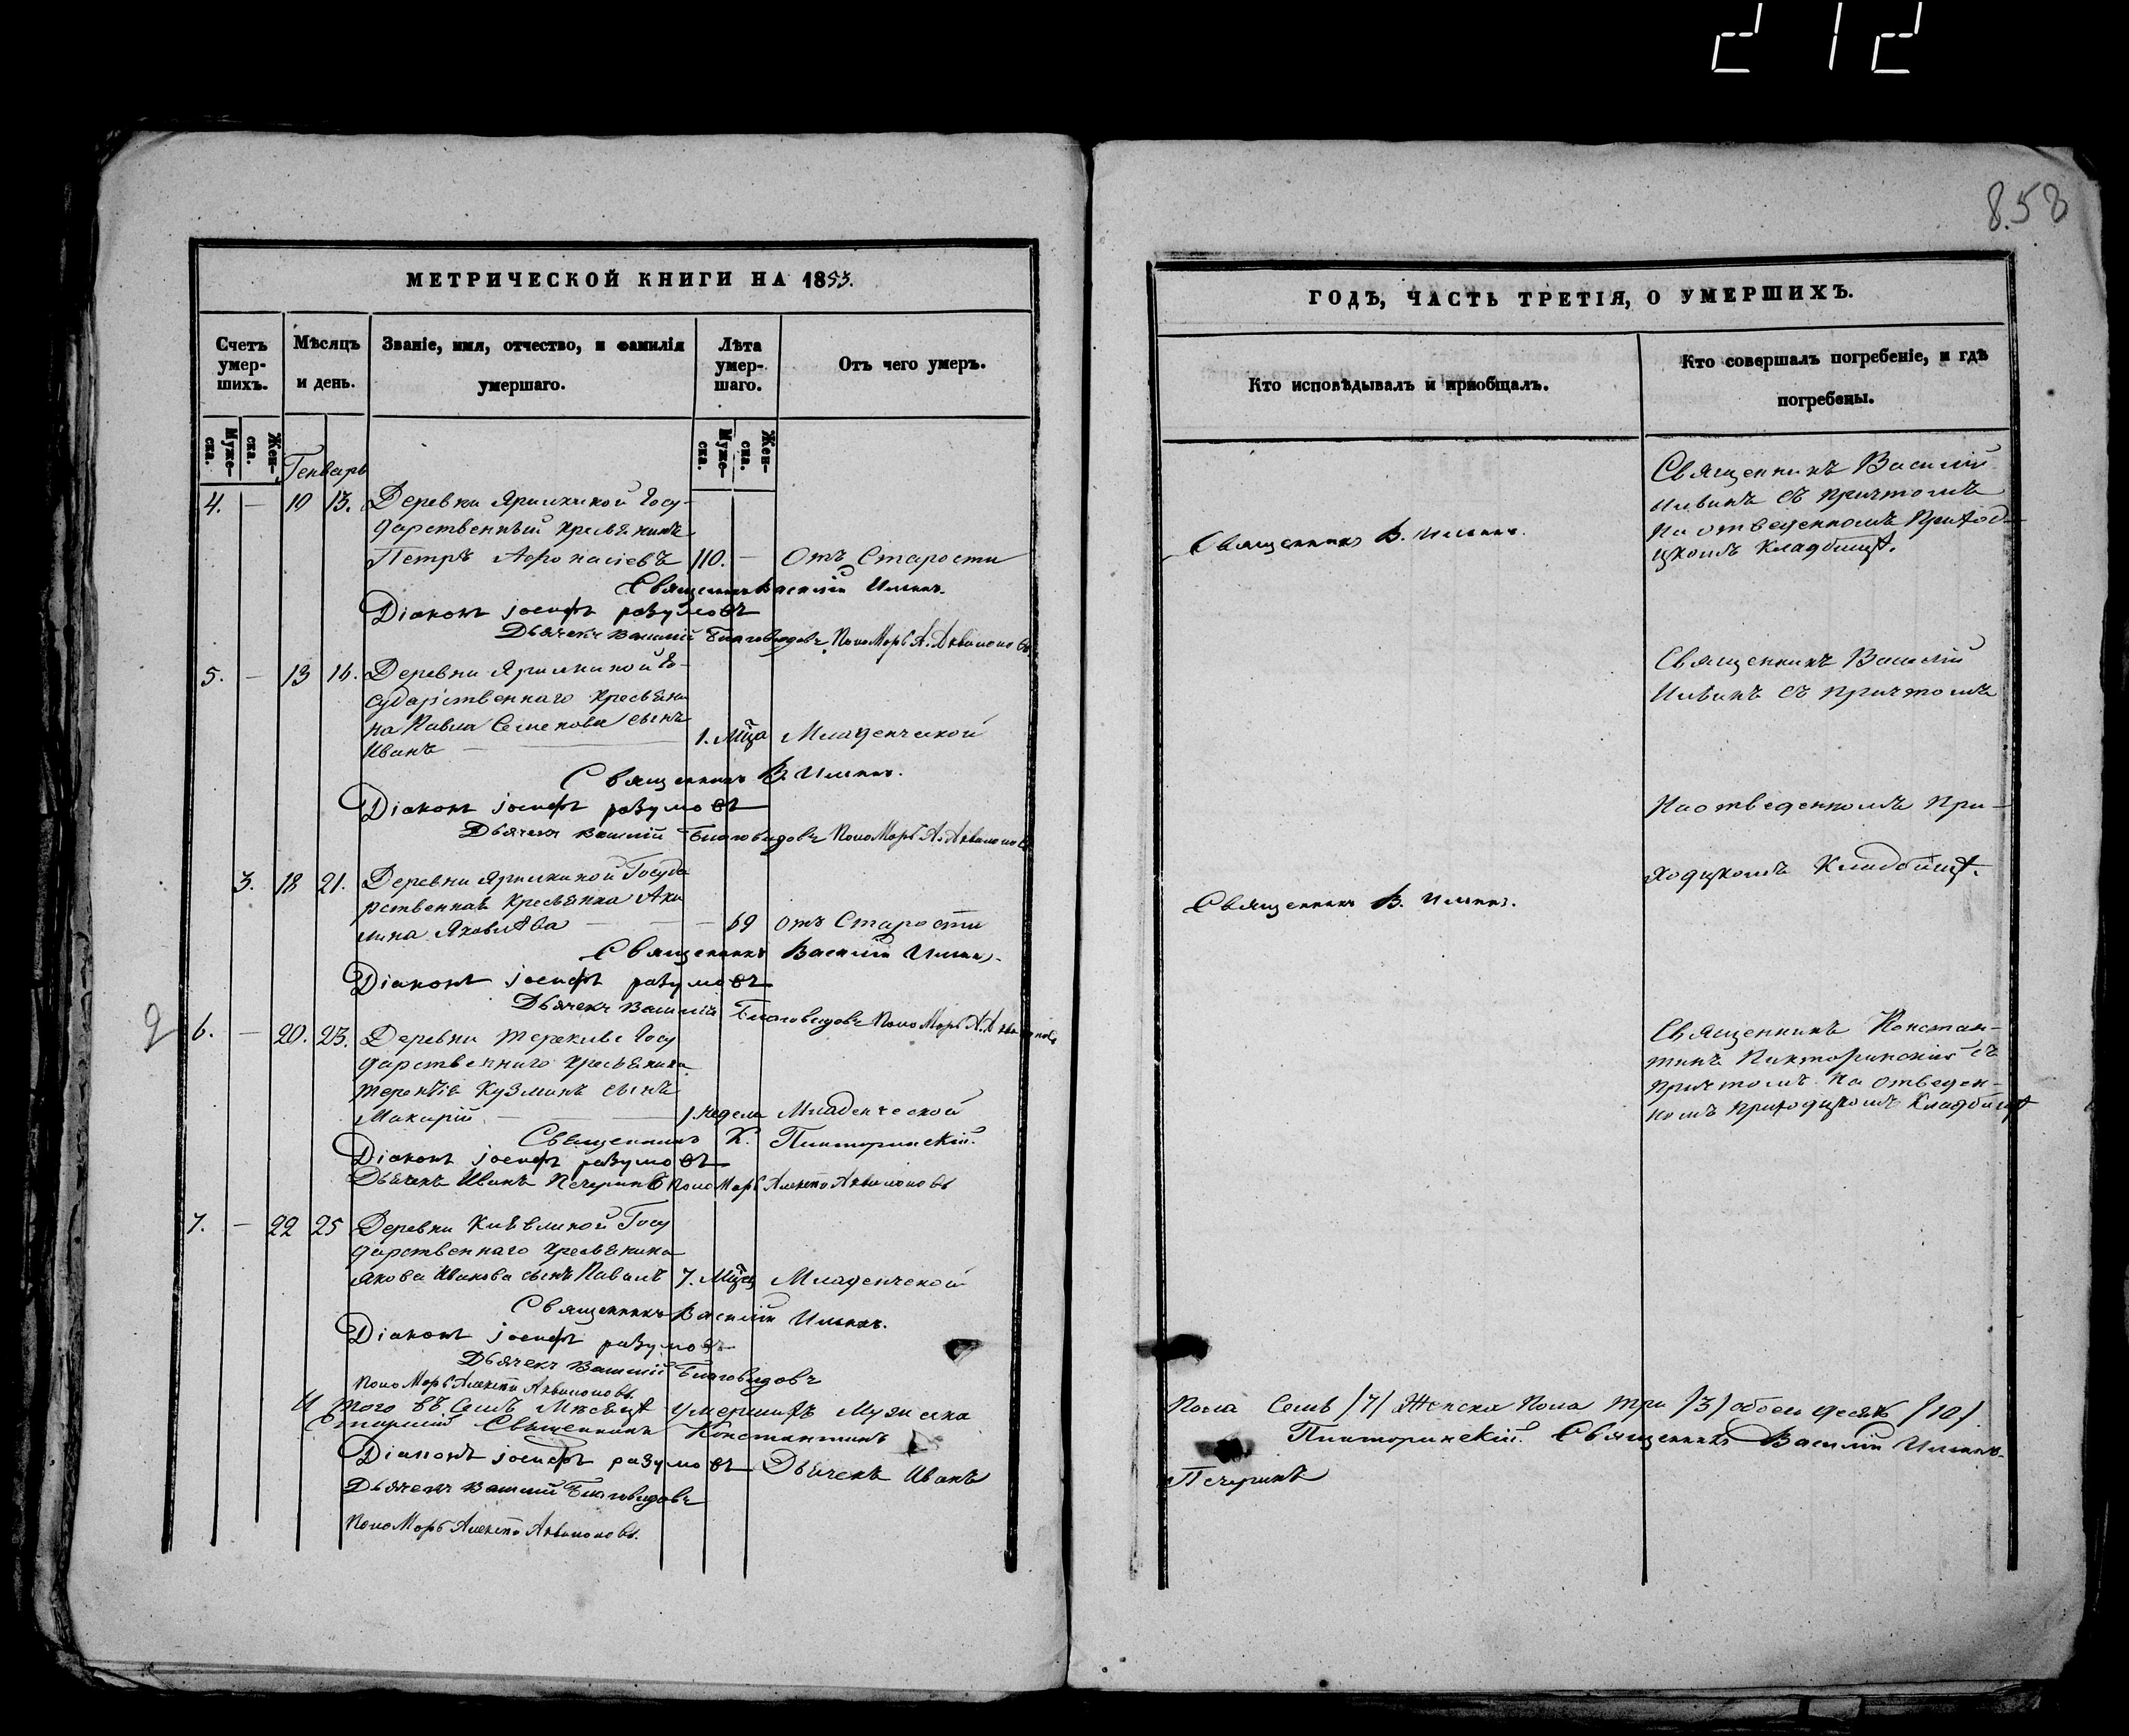 212
858
МЕТРИЧЕСКОЙ КНИГИ НА 1853.
Счетъ умер-
шихъ.
Мѣсяцъ
и день.
Званіе, имя, отчество, и фамилія
умершаго.
Лѣта
умер-
шаго.
Отъ чего умеръ.
Муже-
ска.
Жен-
ска.
Муже-
ска.
Жен-
ска.
Генварь
4. — 10 13. Деревни Госу-
дарственный крестьянинъ
Петръ Афонасіевъ 110. — Отъ Старости
Священникъ Василій
Діаконъ Іосифъ Разумовъ
Дьячекъ Василій Благовидовъ Пономарь А. Аквилоновъ
5. — 13 16. Деревни Го-
сударственнаго крестьяни
на Павла Семенова сынъ
Иванъ — 1. Мца Младенческой
Священникъ В.
Діаконъ Іосифъ Разумовъ
Дьячекъ Василій Благовидовъ Пономарь А. Аквилоновъ
3. 18 21. Деревни Госуда
рственная крестьянка Аки
лина Яковлева — 69 отъ Старости
Священникъ Василій
Діаконъ Іосифъ Разумовъ
Дьячекъ Василій Благовидовъ Пономарь А. Аквилоновъ
6. — 20. 23. Деревни Госу
дарственнаго крестьянина
Терентія Кузмина сынъ
Макарій — 1. недели Младенческой
Священникъ К. Пикторинскій.
Діаконъ Іосифъ Разумовъ
Дьячекъ Иванъ Печеринъ Пономарь Алексѣй Аквилоновъ
7. — 22 25 Деревни Госу
дарственнаго крестьянина
Якова Иванова сынъ Павелъ 7. Мца Младенческой
Священникъ Василій
Діаконъ Іосифъ Разумовъ
Дьячекъ Василій Благовидовъ
Пономарь Алексѣй Аквилоновъ.
Итого въ семъ Мѣсяцѣ умершихъ Мужеска
Старшій Священникъ Константинъ
Діаконъ Іосифъ Разумовъ Дьячекъ Иванъ
Дьячекъ Василій Благовидовъ
Пономарь Алексѣй Аквилоновъ.
ГОДЪ, ЧАСТЬ ТРЕТІЯ, О УМЕРШИХЪ.
Кто исповѣдывалъ и пріобщалъ.
Кто совершалъ погребеніе, и гдѣ
погребены.
Священникъ В.
Священникъ Василій
съ причтомъ
На отведенномъ Приход-
цкомъ Кладбищѣ.
Священникъ Василій
съ причтомъ
На отведенномъ При-
ходцкомъ Кладбищѣ.
Священникъ В.
Священникъ Констан-
тинъ Пикторинскій съ
причтомъ На отведен-
номъ приходцкомъ Кладбищѣ
Пола Семь /7/ Женска Пола три /3/ обоего десять /10/.
Пикторинскій. Священникъ Василій
Печеринъ